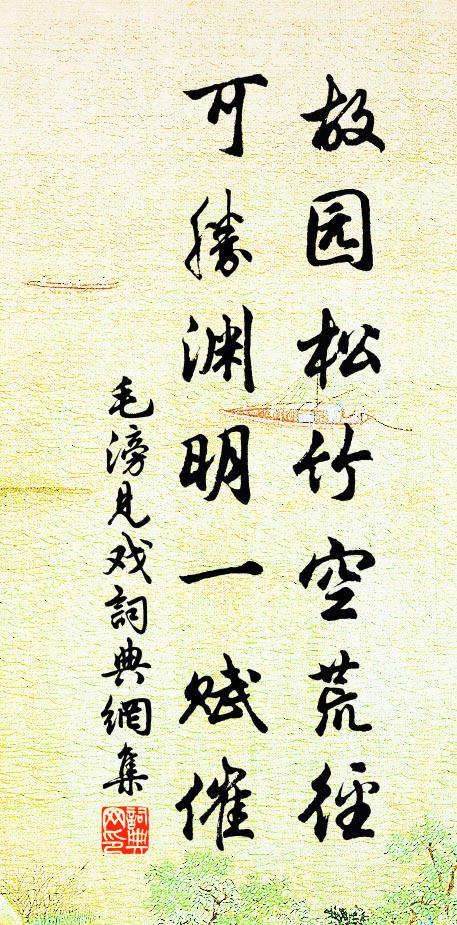 故园松竹空荒径
可勝渊明一赋催
毛滂見戏詞典網集
詞典網印